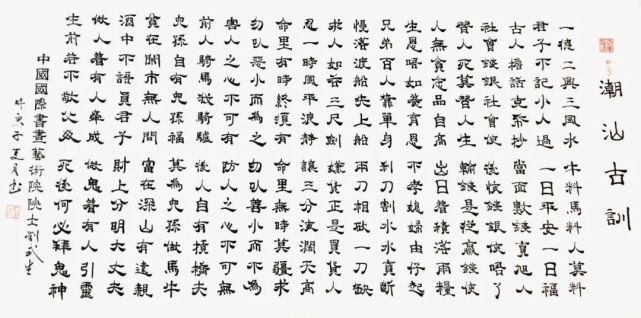 潮汕古訓
一德二興三風水 牛料馬料人莫料
君子不記小人過 一日平安一日福
古人搭話 當面數錢真
社會錢銀社會使 後 錢銀使唔了
贅人死莫贅人生 輸錢是從贏錢使
人無貪念品自高 出日着積落雨糧
生恩唔如養育恩 不孝媳婦由仔起
兄弟百人靠單身 利刀割水水 斷
慢落渡船先上船 兩刀相砍一刀缺
求人如吞三尺劍 嫌貨正是買貨人
忍一時風平浪静 讓三分海闊天高
命里有時終須有 命里無時莫彊求
勿以惡小而為之 勿以善小而不為
害人之心不可有 防人之心不可無
前人騎馬我騎驢 後人自有橫橋夫
兒孫自有兒孫福 莫為兒孫做馬牛
貧在鬧市無人問 富在深山有遠親
酒中不語真君子 財上分明大丈夫
做人着有人牽成 做鬼着有人引靈
生前若不敬父母 死後何必拜鬼神
中國國際書畫藝術院院士劉武生
時庚子夏月書